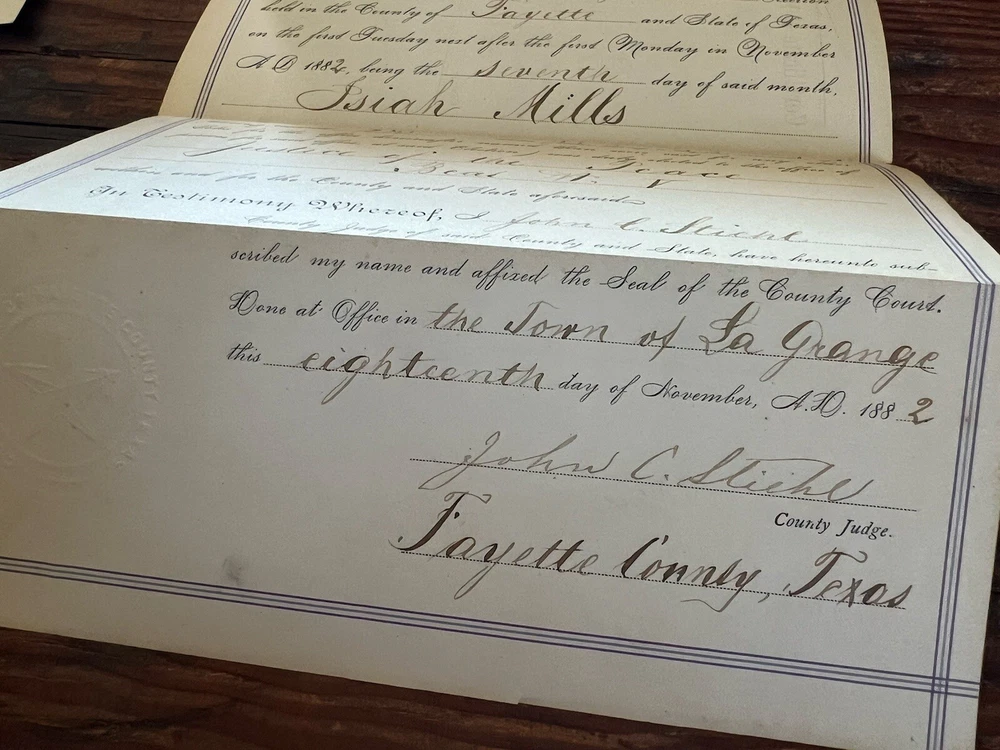 held in the County of Fayette and State of Texas,
on the first Tuesday next after the first Monday in November
A D 1882, being the seventh day of said month,
Isiah Mills
was duly elected to the office of
Justice of the Peace
within and for the County and State aforesaid
In Testimony Whereof, I John C. Stiehl
County Judge of said County and State, have hereunto sub-
scribed my name and affixed the Seal of the County Court.
Done at Office in the Town of La Grange
this eighteenth day of November, A.D. 1882
John C. Stiehl
County Judge.
Fayette County, Texas